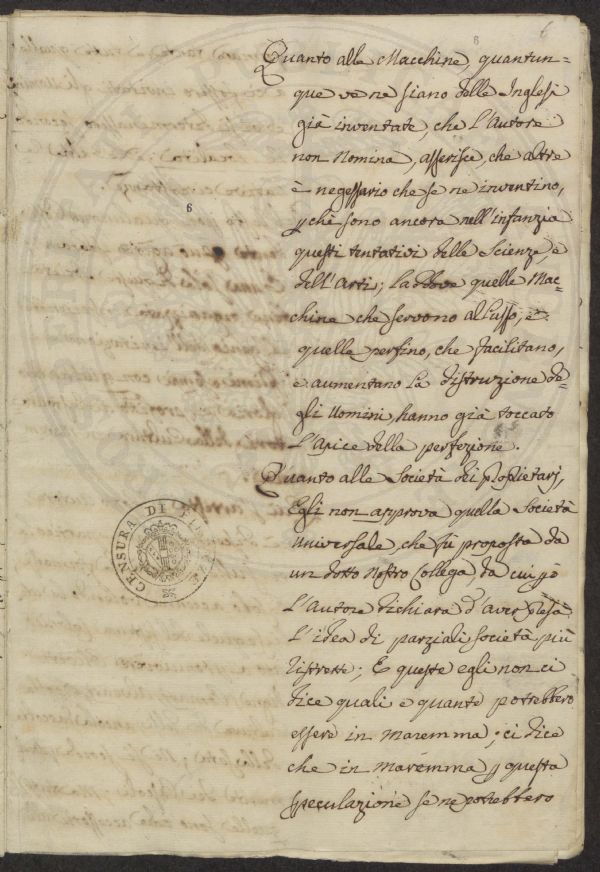 6
6
Quanto alle Macchine, quantun=
que ve ne siano delle Inglesi
già inventate, che l'Autore
non nomina, asserisce, che altre
è necessario che se ne inventino,
pchè sono ancora nell'infanzia
questi tentativi delle Scienze, e
dell'Arti; laddove quelle Mac=
chine che servono al Lusso, e
quelle perfino, che facilitano,
e aumentano la distruzione de=
gli Uomini, hanno già toccato
l'Apice della perfezione.
Quanto alle Società dei Proprietarj,
Egli non approva quella Società
universale, che fù proposta da
un dotto Nostro Collega, da cui pò
l'Autore dichiara d'aver presa
l'idea di parziali società più
ristrette; E queste egli non ci
dice quali e quante potrebbero
essere in maremma; ci dice
che in maremma p questa
speculazione se ne potrebbero
6
CENSURA DI